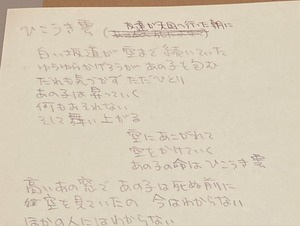 ひこうき雲 (友達が天国へ行った朝に
白い坂道が空まで続いていた
ゆらゆらかげろうが あの子を包む
だれも気づかず ただひとり
あの子は昇っていく
何もおそれない
そして舞い上がる
空にあこがれて
空をかけていく
あの子の命は ひこうき雲
高いあの窓で あの子は死ぬ前に
空を見ていたの 今はわからない
ほかの人にはわからない